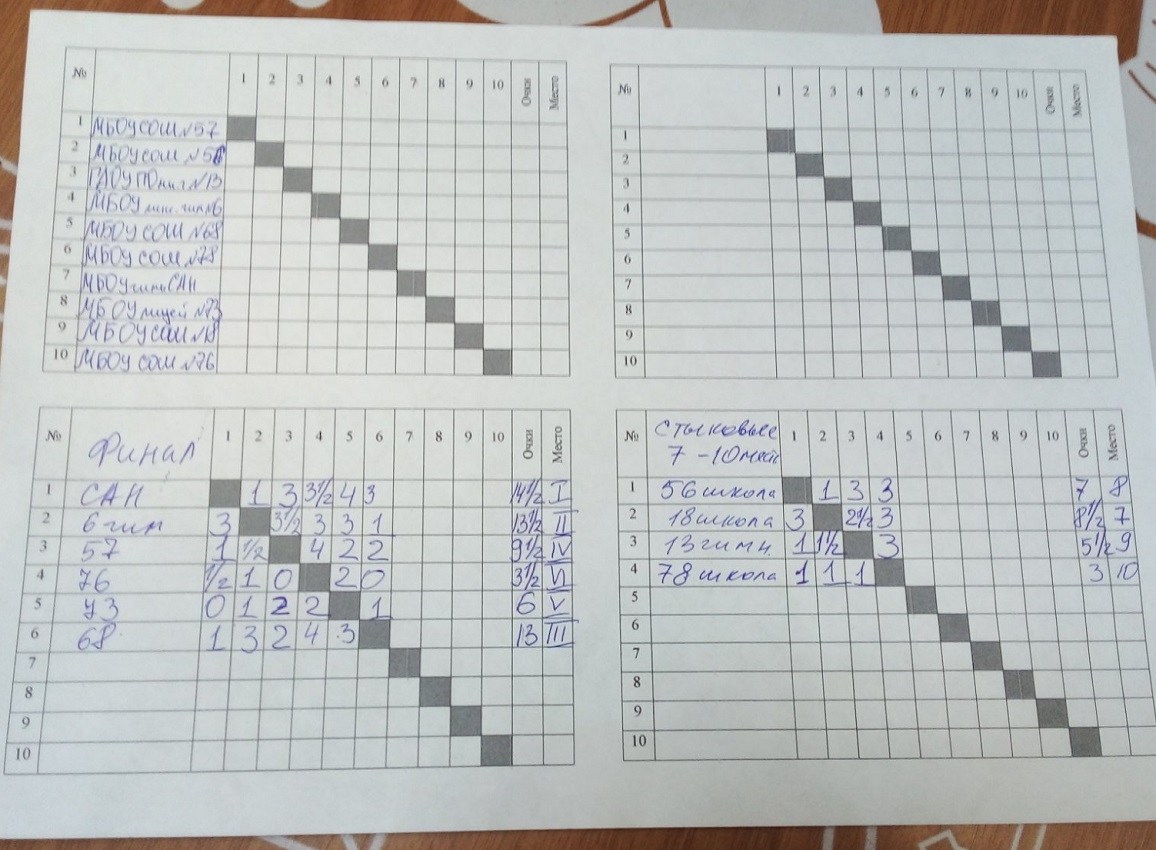 № 1 2 3 4 5 6 7 8 9 10 Очки Место
1 МБОУ СОШ №57
2 МБОУ СОШ №56
3 ГАОУ №13
4 МБОУ №6
5 МБОУ СОШ №68
6 МБОУ СОШ №78
7 МБОУ гимн САН
8 МБОУ лицей №73
9 МБОУ СОШ №18
10 МБОУ СОШ №76
№ 1 2 3 4 5 6 7 8 9 10 Очки Место
1
2
3
4
5
6
7
8
9
10
№ Финал 1 2 3 4 5 6 7 8 9 10 Очки Место
1 САН 1 3 3½ 4 3 14½ I
2 6 гим 3 3½ 3 3 1 13½ II
3 57 1 ½ 4 2 2 9½ IV
4 76 ½ 1 0 2 0 3½ VI
5 73 0 1 2 2 1 6 V
6 68 1 3 2 4 3 13 III
7
8
9
10
№ стыковые 1 2 3 4 5 6 7 8 9 10 Очки Место
7-10 мест
1 56 школа 1 3 3 7 8
2 18 школа 3 2½ 3 8½ 7
3 13 гимн 1 1½ 3 5½ 9
4 78 школа 1 1 1 3 10
5
6
7
8
9
10